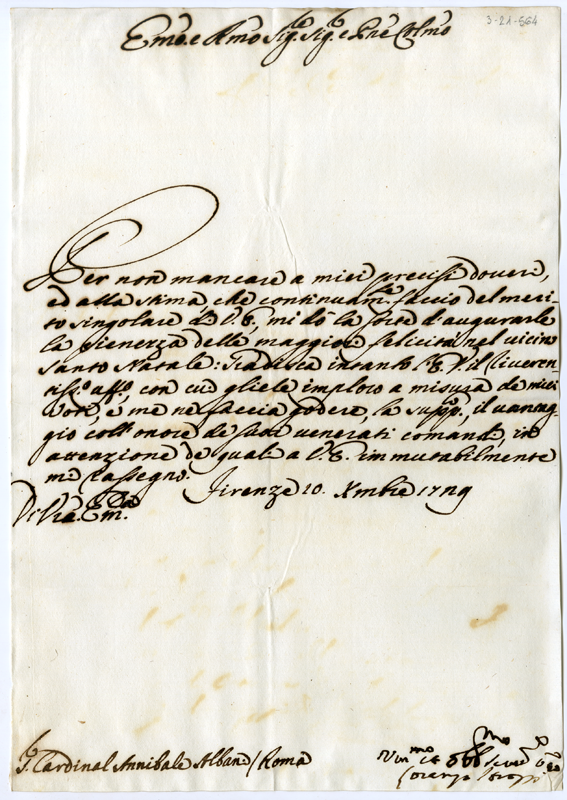 3-21-564
Em̃o. e Rm̃o Sig.r Sig.r e Pñe Col̃mo
Per non mancare a miei precisi doveri,
ed alla stima, che continuam.te faccio del meri-
to singolare di V. E., mi dò la sorte d'augurarle
la pienezza delle maggiori felicità nel vicino
Santo Natale: Gradisca intanto l'E. V. il riveren-
tiss.o aff.o, con cui gliele imploro a misura de miei
Voti, e me ne faccia godere, la supp.o, il vantag-
gio coll'onore de suoi venerati comandi, in
attenzione de quali a V. E. immutabilmente
mi rassegno.
Firenze 20. Xmbre 1729
Di V.ra Em.za
S. Cardinal Annibale Albani / Roma
Um.mo et Obb.mo
Lorenzo